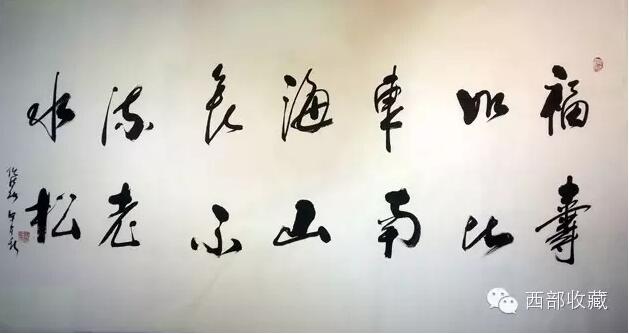 福如東海長流水
壽比南山不老松
西部收藏